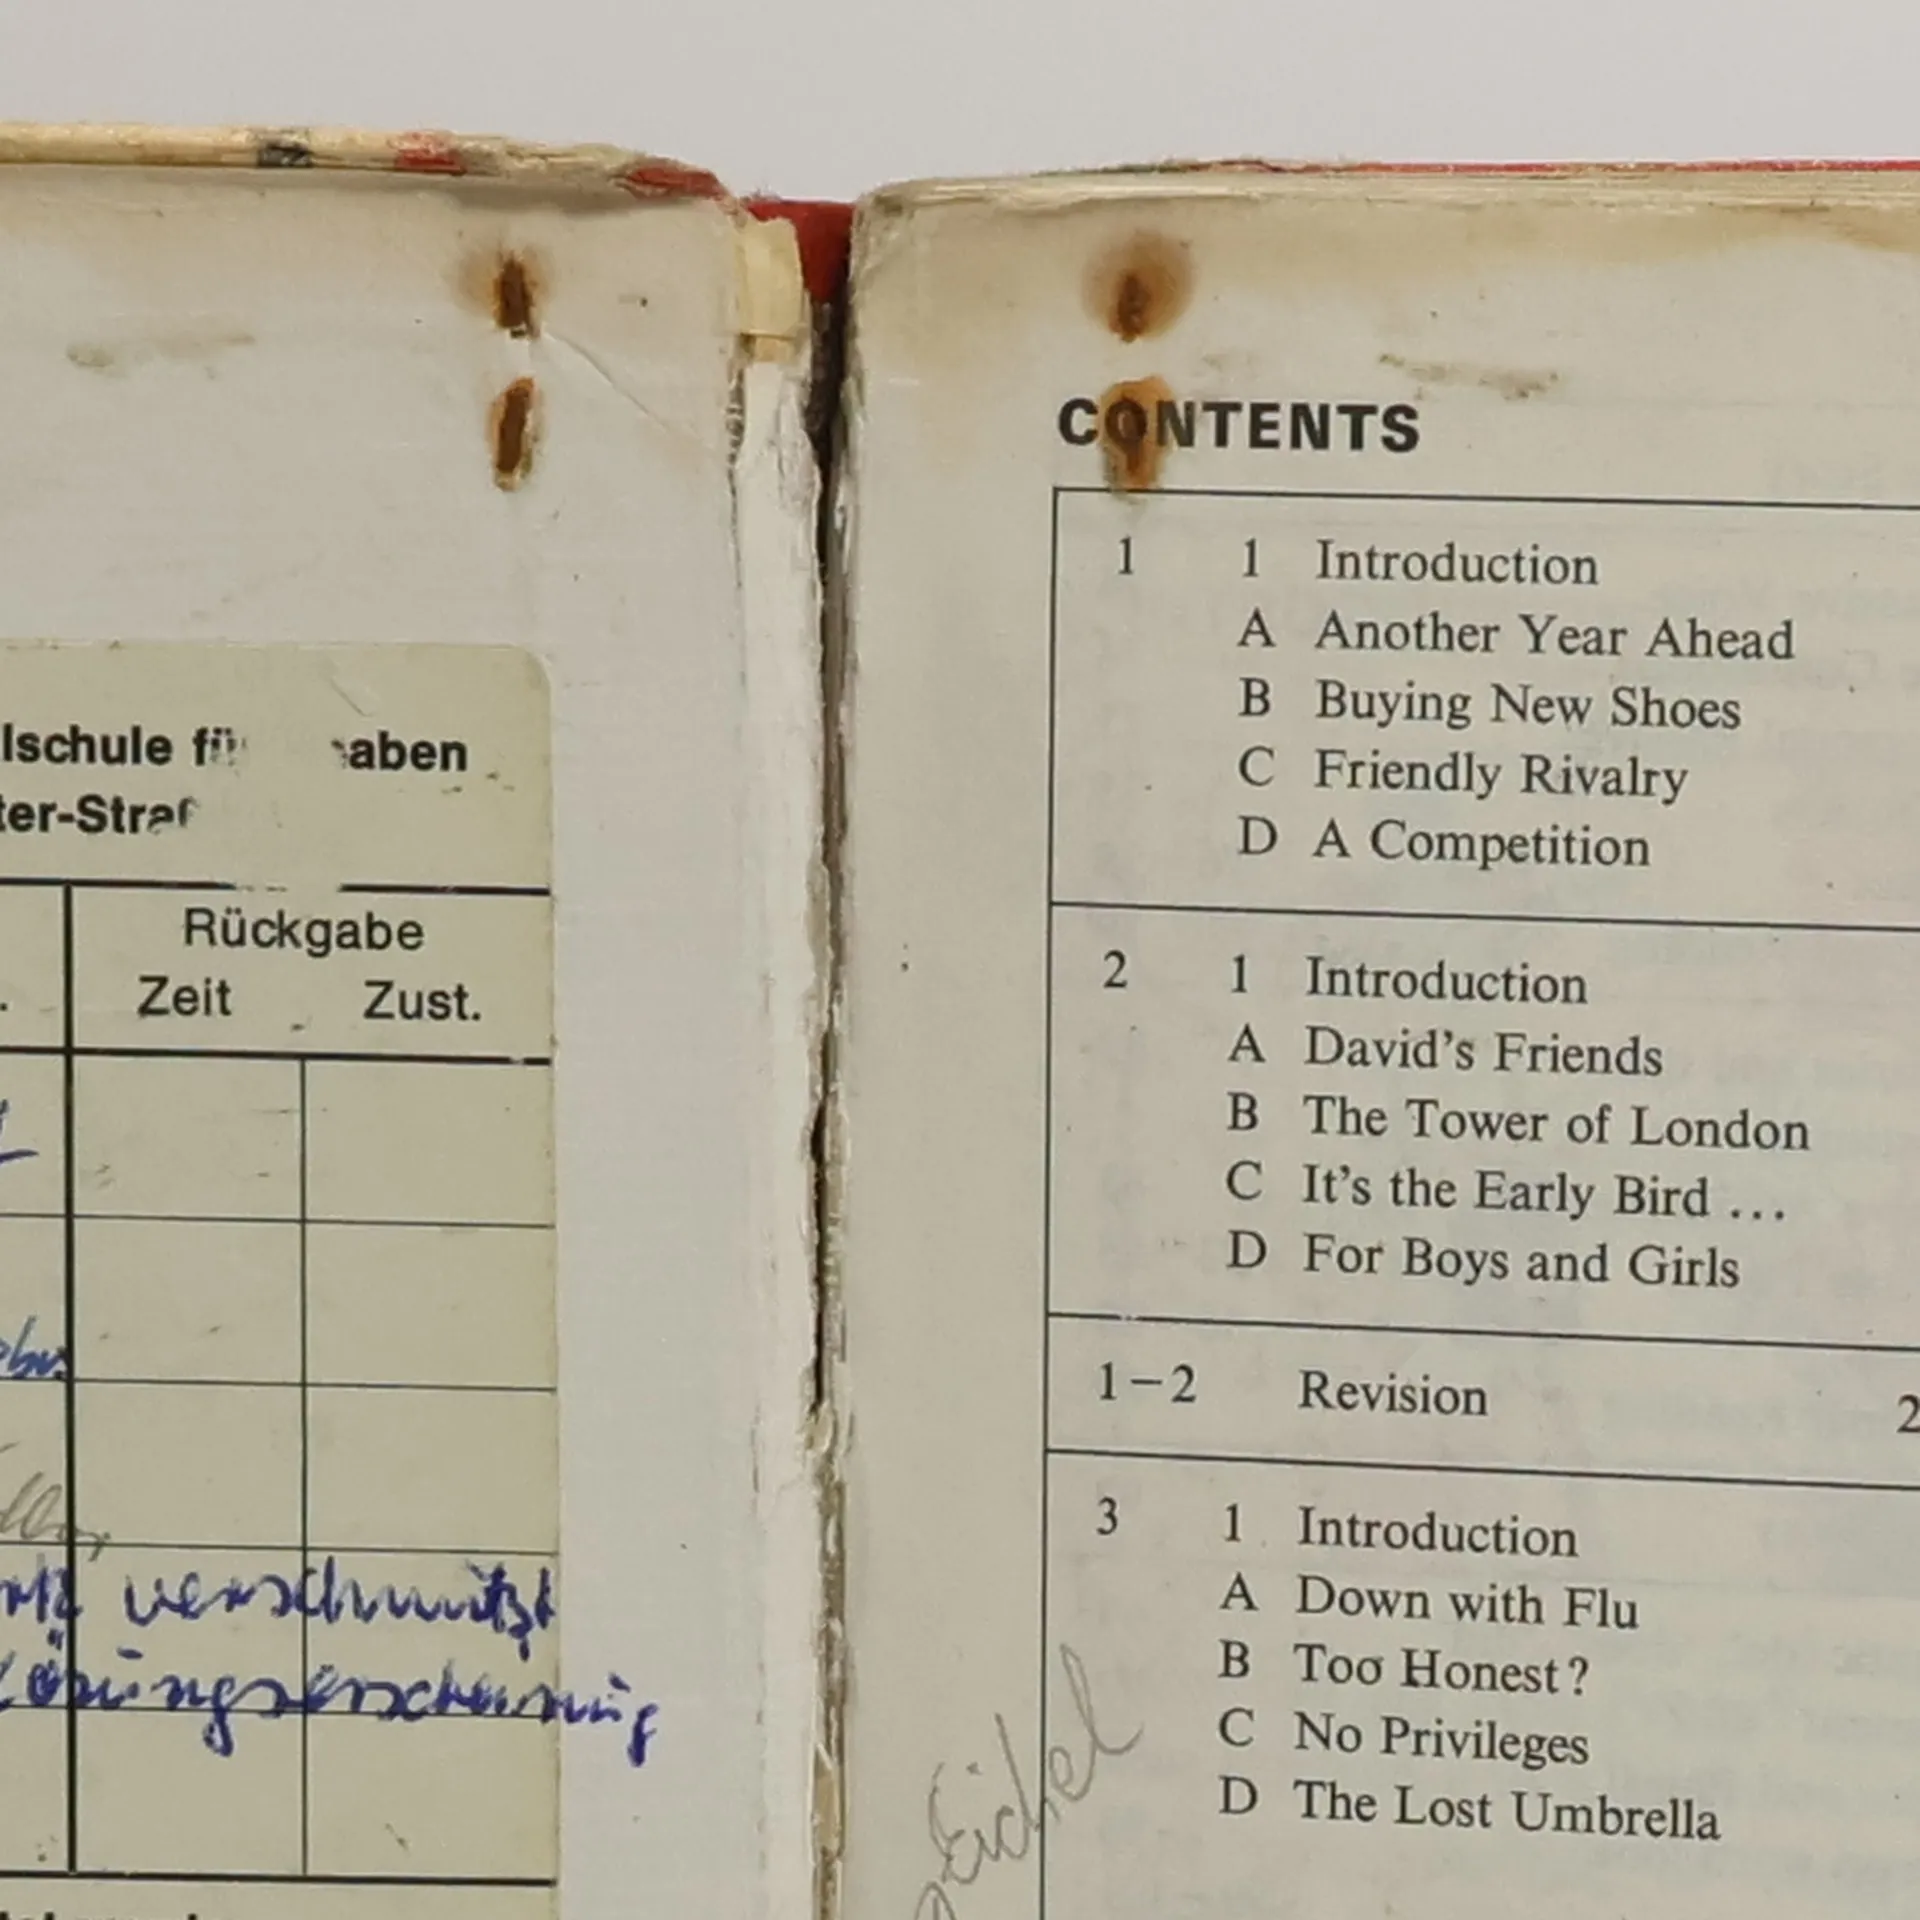 lschule für aben
ter-Straß
Rückgabe
Zeit Zust.
verschmutzt
CONTENTS
1 1 Introduction
A Another Year Ahead
B Buying New Shoes
C Friendly Rivalry
D A Competition
2 1 Introduction
A David's Friends
B The Tower of London
C It's the Early Bird ...
D For Boys and Girls
1–2 Revision 2
3 1 Introduction
A Down with Flu
B Too Honest?
C No Privileges
D The Lost Umbrella
Eichel